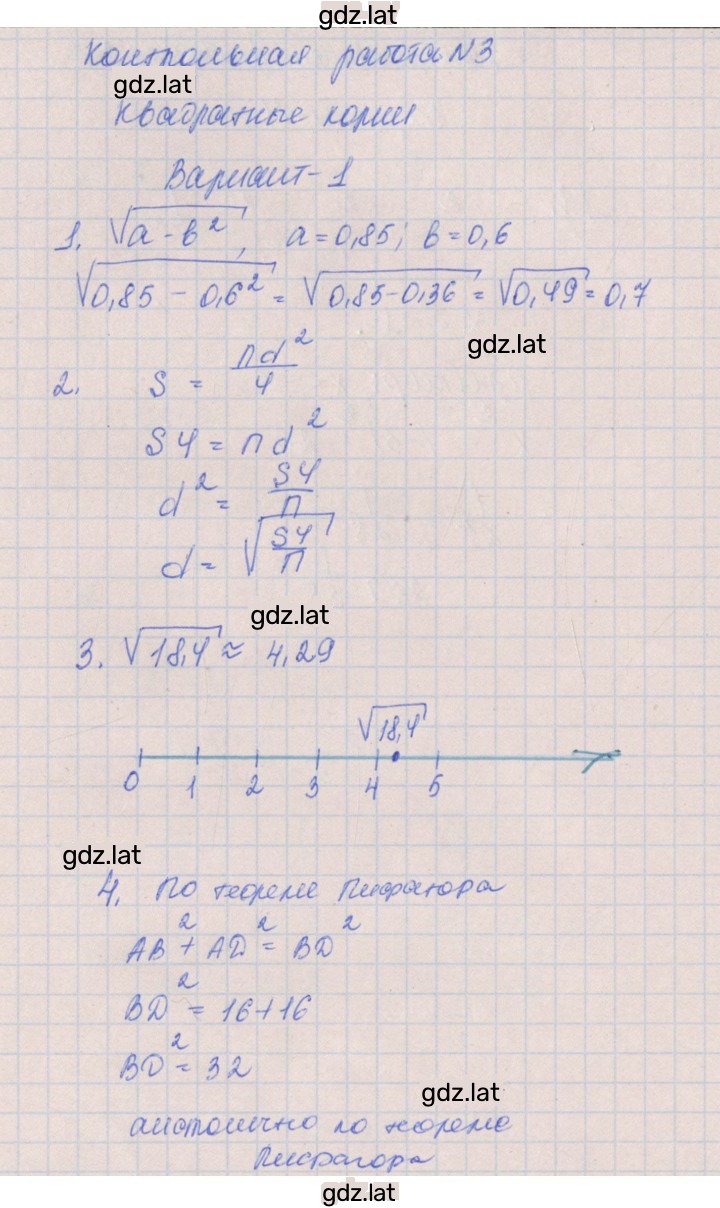 gdz.lat
Контрольная работа N3
gdz.lat
Квадратные корни
Вариант-1
1. √(a - b²), a = 0,85; b = 0,6
√(0,85 - 0,6²) = √(0,85-0,36) = √(0,49) = 0,7
gdz.lat
2. S = пd²/4
S4 = пd²
d² = S4/п
d = √(S4/п)
gdz.lat
3. √(18,4) ≈ 4,29
√(18,4)
0 1 2 3 4 5
gdz.lat
4. По теореме Пифагора
AB² + AD² = BD²
BD² = 16+16
BD² = 32
gdz.lat
по теореме
Пифагора
gdz.lat